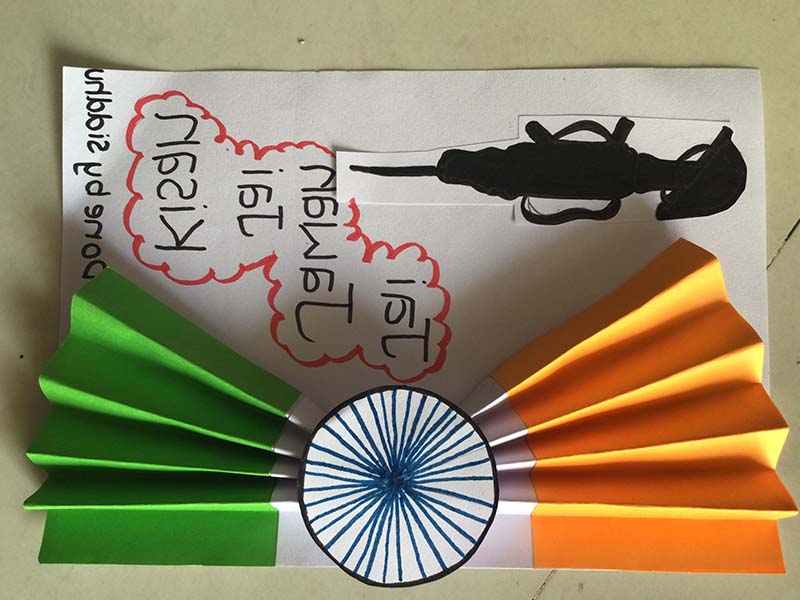 Jai
JaWaN
Jai
KisaN
Done by Siddhu